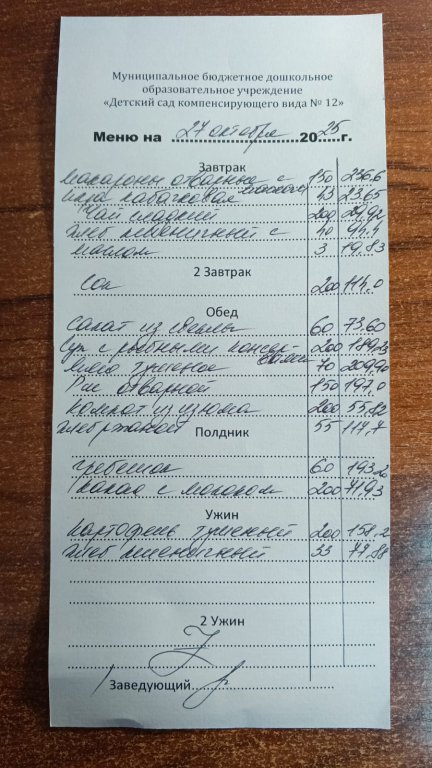 Муниципальное бюджетное дошкольное
образовательное учреждение
«Детский сад компенсирующего вида № 12»
Меню на 27 октября 2025 г.
Завтрак
макароны отварные с маслом 150 226.6
икра кабачковая 43 23,65
Чай сладкий 200 24,92
хлеб пшеничный с 40 94,4
маслом 3 19,83
2 Завтрак
Сок 200 114,0
Обед
Салат из свеклы 60 73.60
Суп с рыбными консервами 200
мясо тушеное 70 209,70
Рис отварной 150 197,0
Компот из изюма 200 55,82
хлеб ржаной 55 117,7
Полдник
гребешок 60 193
Какао с молоком 200 71,93
Ужин
картофель тушенный 200 158,2
хлеб пшеничный 33 77.88
2 Ужин
Заведующий